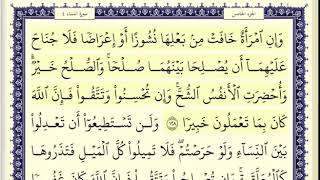 الجزء الخامس سورة النساء ٤
وَإِنِ ٱمۡرَأَةٌ خَافَتۡ مِنۢ بَعۡلِهَا نُشُوزًا أَوۡ إِعۡرَاضٗا فَلَا جُنَاحَ
عَلَيۡهِمَآ أَن يُصۡلِحَا بَيۡنَهُمَا صُلۡحٗاۚ وَٱلصُّلۡحُ خَيۡرٞۗ
وَأُحۡضِرَتِ ٱلۡأَنفُسُ ٱلشُّحَّۚ وَإِن تُحۡسِنُواْ وَتَتَّقُواْ فَإِنَّ ٱللَّهَ
كَانَ بِمَا تَعۡمَلُونَ خَبِيرٗا ١٢٨ وَلَن تَسۡتَطِيعُوٓاْ أَن تَعۡدِلُواْ
بَيۡنَ ٱلنِّسَآءِ وَلَوۡ حَرَصۡتُمۡۖ فَلَا تَمِيلُواْ كُلَّ ٱلۡمَيۡلِ فَتَذَرُوهَا
كَٱلۡمُعَلَّقَةِۚ وَإِن تُصۡلِحُواْ وَتَتَّقُواْ فَإِنَّ ٱللَّهَ كَانَ غَفُورٗا